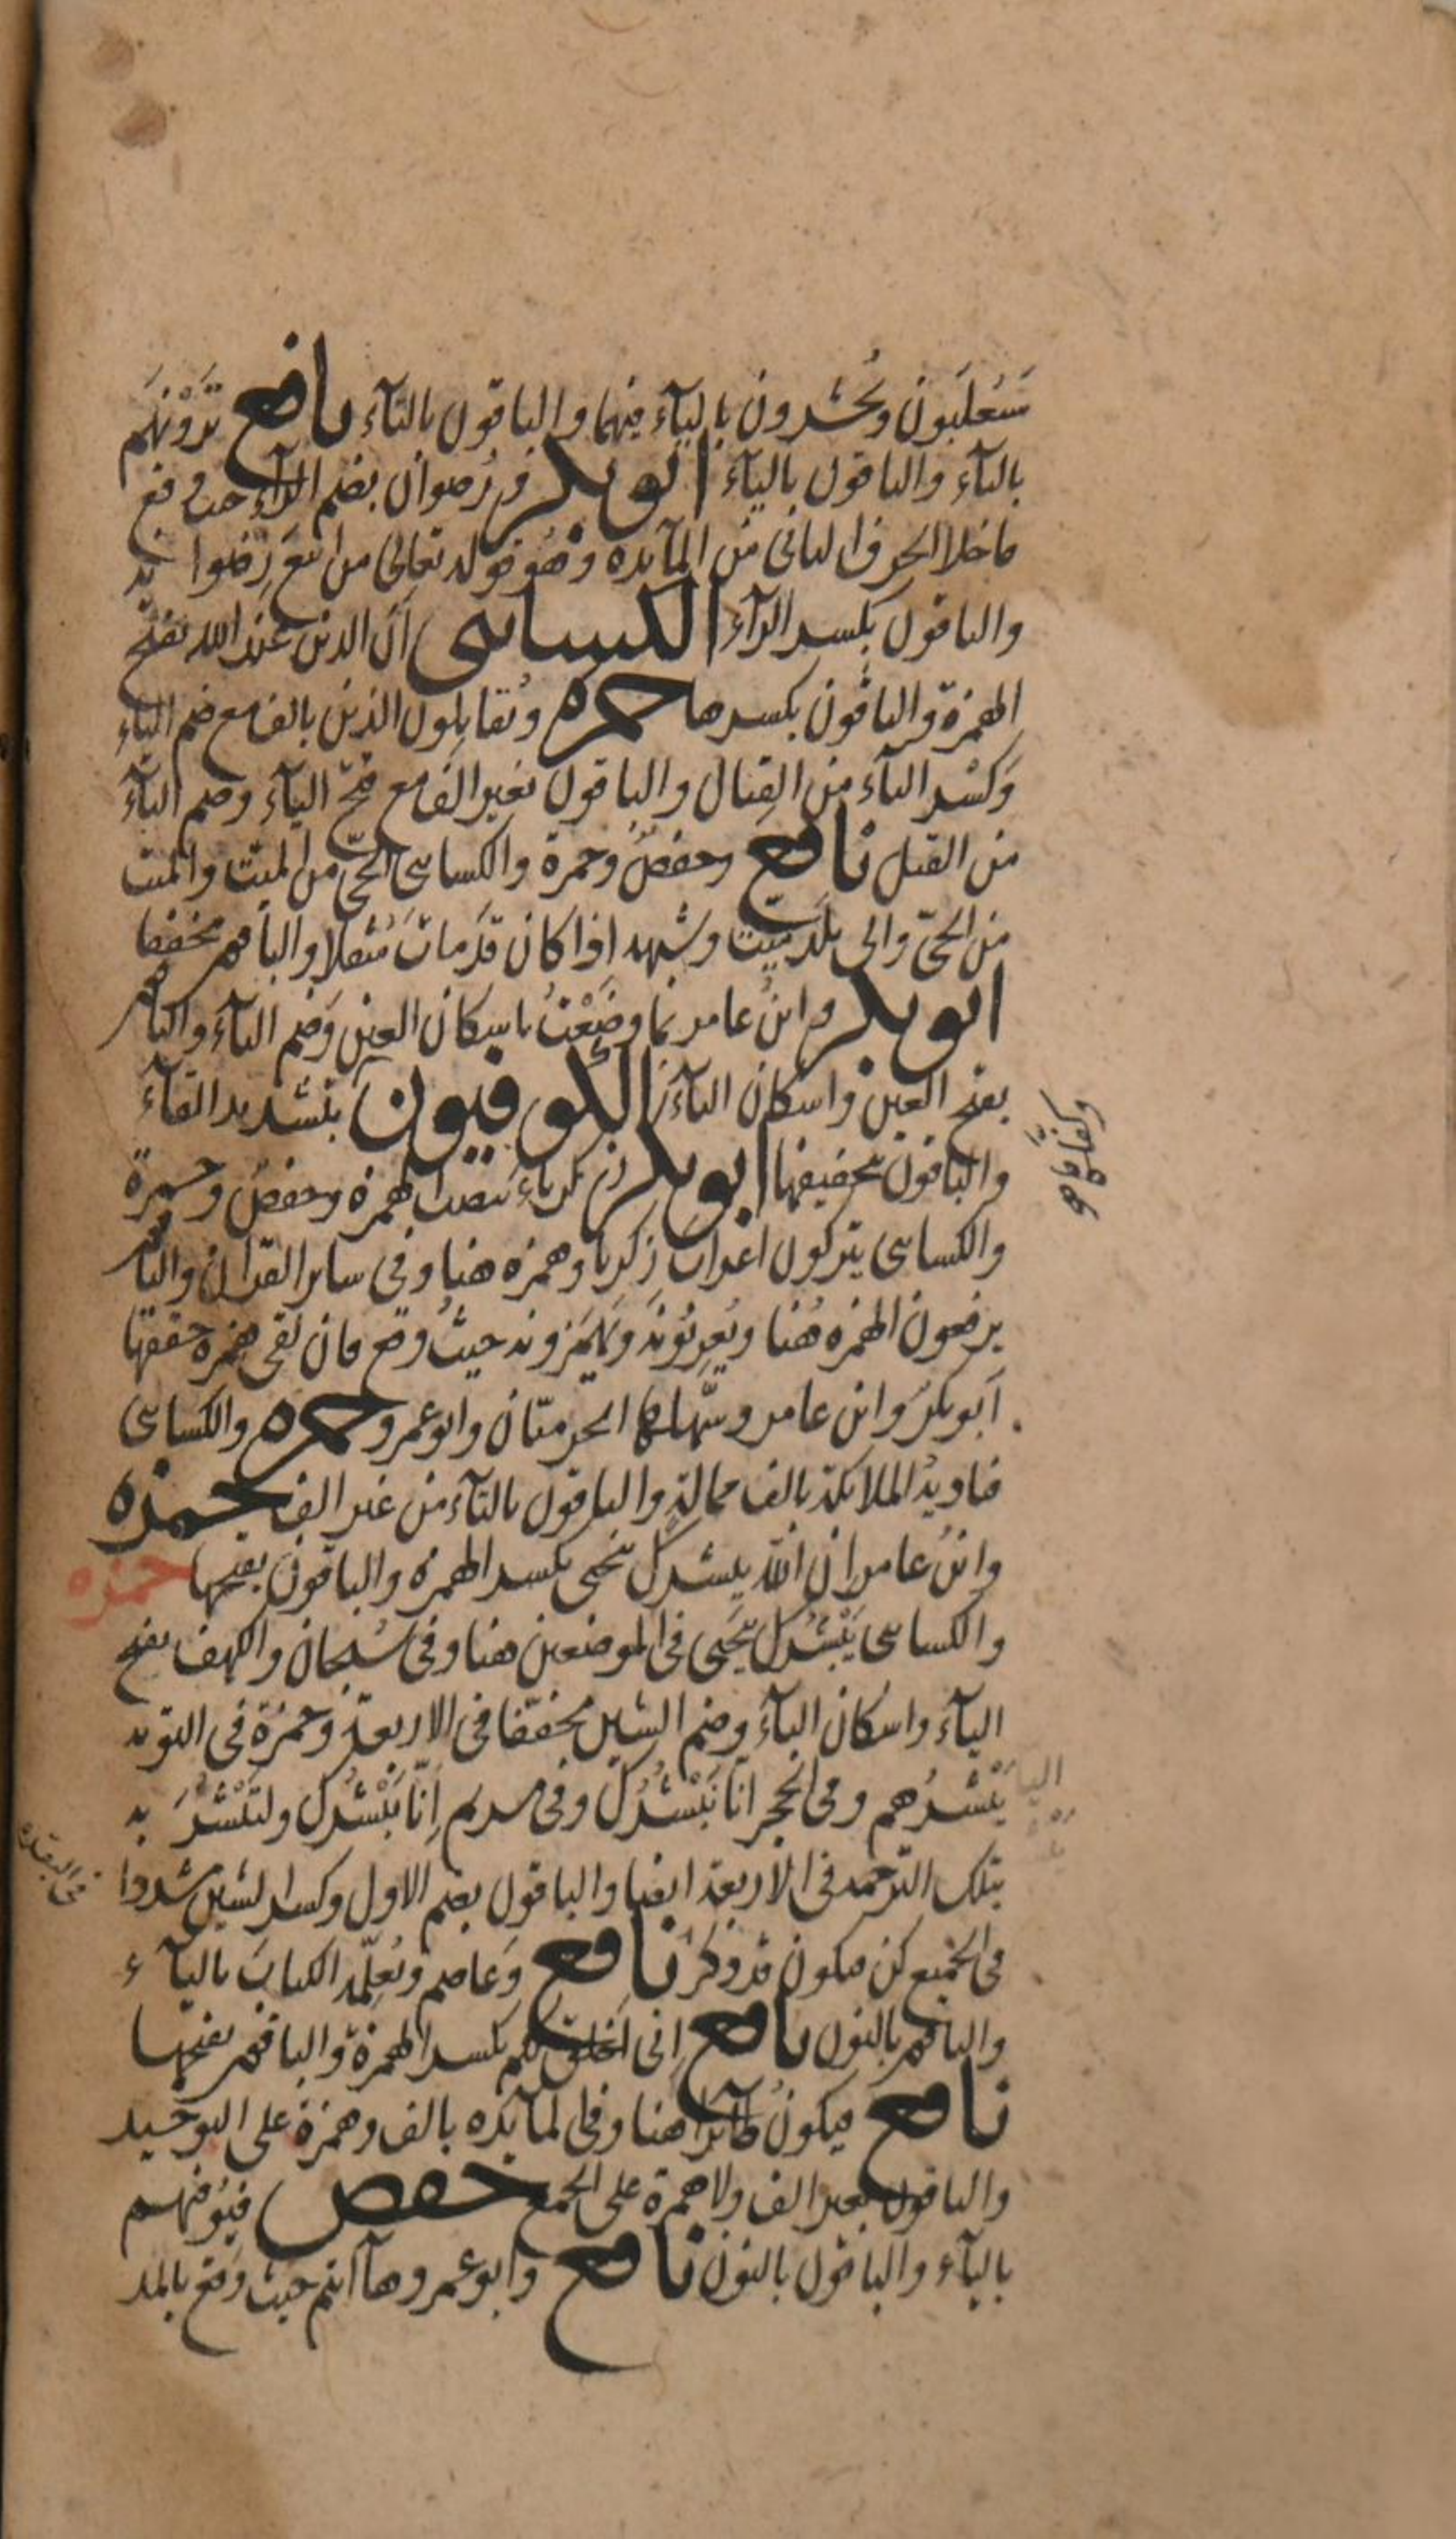 سَيُغلَبُون ويُحشرون باليآء فيهما والباقون بالتآء نافع تَرَوْنَهُم
بالتآء والباقون باليآء ابو بكر ورُضوان بضم الرآء حيث وقع
ما خلا الحرف الثانى من المآيدة وهو قوله تعالى من اتبع رِضوانه
والباقون بكسر الرآء الكسايى اَنّ الدين عند الله بفتح
الهمزة والباقون بكسرها حمزه ويُقاتِلون الذين بالف مع ضم اليآء
وَكسْر التآء من القِتال والباقون بغير الف مع فتح اليآء وضم التآء
من القتل نافع وحفصٌ وحمزة والكساىى الحىّ من الميّت والميّت
من الحىّ والى بلد ميّت وشبهه اذا كان قد مات مُثقلا والباقون مخففا
ابو بكر وابنُ عامر بما وضَعْتُ باسكان العين وَضم التآء والباقون
بفتح العين واسكان التآء الكوفيون بتشديد الفآء
وكفلها
والباقون بتخفيفها ابو بكر زكرياءَ بنصب الهمزة وحفصٌ وحمزة
والكساىى يتركون اعرابَ زكريا وهمزه هنا وفى ساير القرآن والباقون
يرفعون الهمزه هُنا ويُعربُونه ويَهمزونه حيثُ وقع فان لقى همزه حققها
ابو بكر وابن عامر وسَهّلها الحرميّان وابو عمرو حمزه والكساىى
فناديه الملائكة بالف ممالةٍ والباقون بالتآء من غير الف حمزه
وابنُ عامر اِن الله يبشرك بيحيى بكسر الهمزه والباقون بفتحها حمزه
والكساىى يَبْشُرك بيَحيى فى الموضعين هنا وفى سُبحان والكهف بفتح
اليآء واسْكان البآء وضم الشين مخففا فى الاربعة وحمزة فى التوبه
يَبْشُرُهم وفى الحجر انا نَبْشُرُك وفى مريم اِنّا نَبْشُرُك ولتَبْشُرَ به
بتلك الترجمه فى الاربعة ايضا والباقون بضم الاول وكسر الشين مشددا
فى الجميع كن فيكون قد ذكر نافع وَعاصم ويُعلّمه الكتابَ باليآء
فى البقره
والباقون بالنون نافع اِنى اخلق لكم بكسر الهمزة والباقون بفتحها
نافع فيكونُ طآئرًا هنا وفى المآيده بالف وهمزة على التوحيد
والباقون بغير الف ولا همزة على الجمع حفص فيُوفيهم
باليآء والباقون بالنون نافع وابو عمرو هآ انتم حيث وقع بالمد